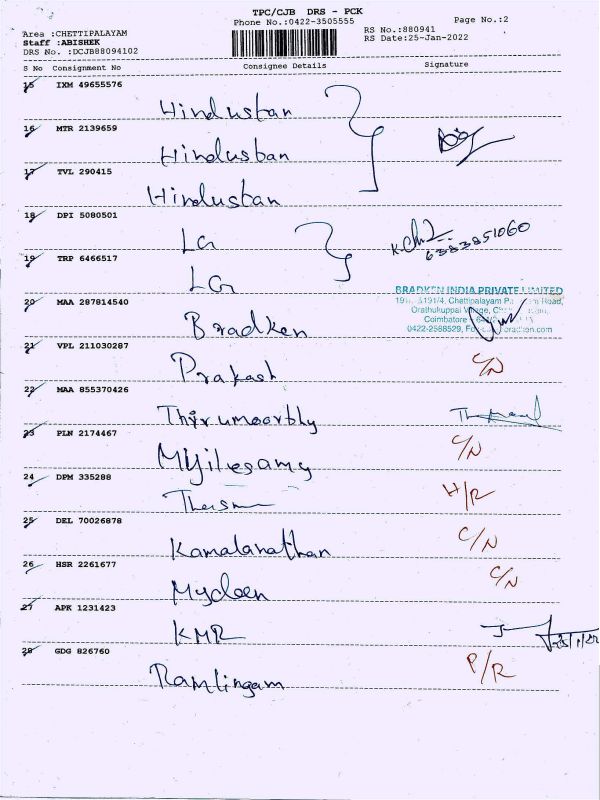 TPC/CJB DRS - PCK
Phone No.:0422-3505555
Page No.:2
Area :CHETTIPALAYAM
Staff :ABISHEK
DRS No. :DCJB88094102
RS No.:880941
RS Date:25-Jan-2022
S No Consignment No Consignee Details Signature
15 IXM 49655576
Hindustan
16 MTR 2139659
Hindustan
17 TVL 290415
Hindustan
18 DPI 5080501
LG
K.
6383851060
19 TRP 6466517
LG
20 MAA 287814540
Bradken
BRADKEN INDIA PRIVATE LIMITED
Chettipalayam Road,
Orathukuppai Village,
Coimbatore
0422-2588529,
21 VPL 211030287
Prakash C/N
22 MAA 855370426
Thirumoorthy
23 PLN 2174467
Myilesamy C/N
24 DPM 335288
H/R
25 DEL 70026878
Kamalanathan C/N
26 HSR 2261677
Mydeen C/N
27 APK 1231423
KMR
28 GDG 826760
Ramlingam P/R